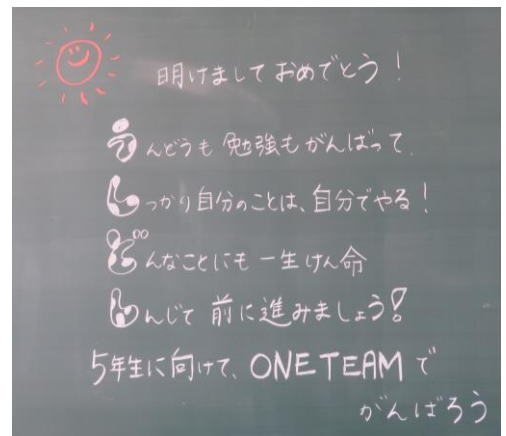 明けましておめでとう！
うんどうも勉強もがんばって
しっかり自分のことは、自分でやる！
どんなことにも一生けん命
しんじて前に進みましょう！
5年生に向けて、ONE TEAMで
がんばろう